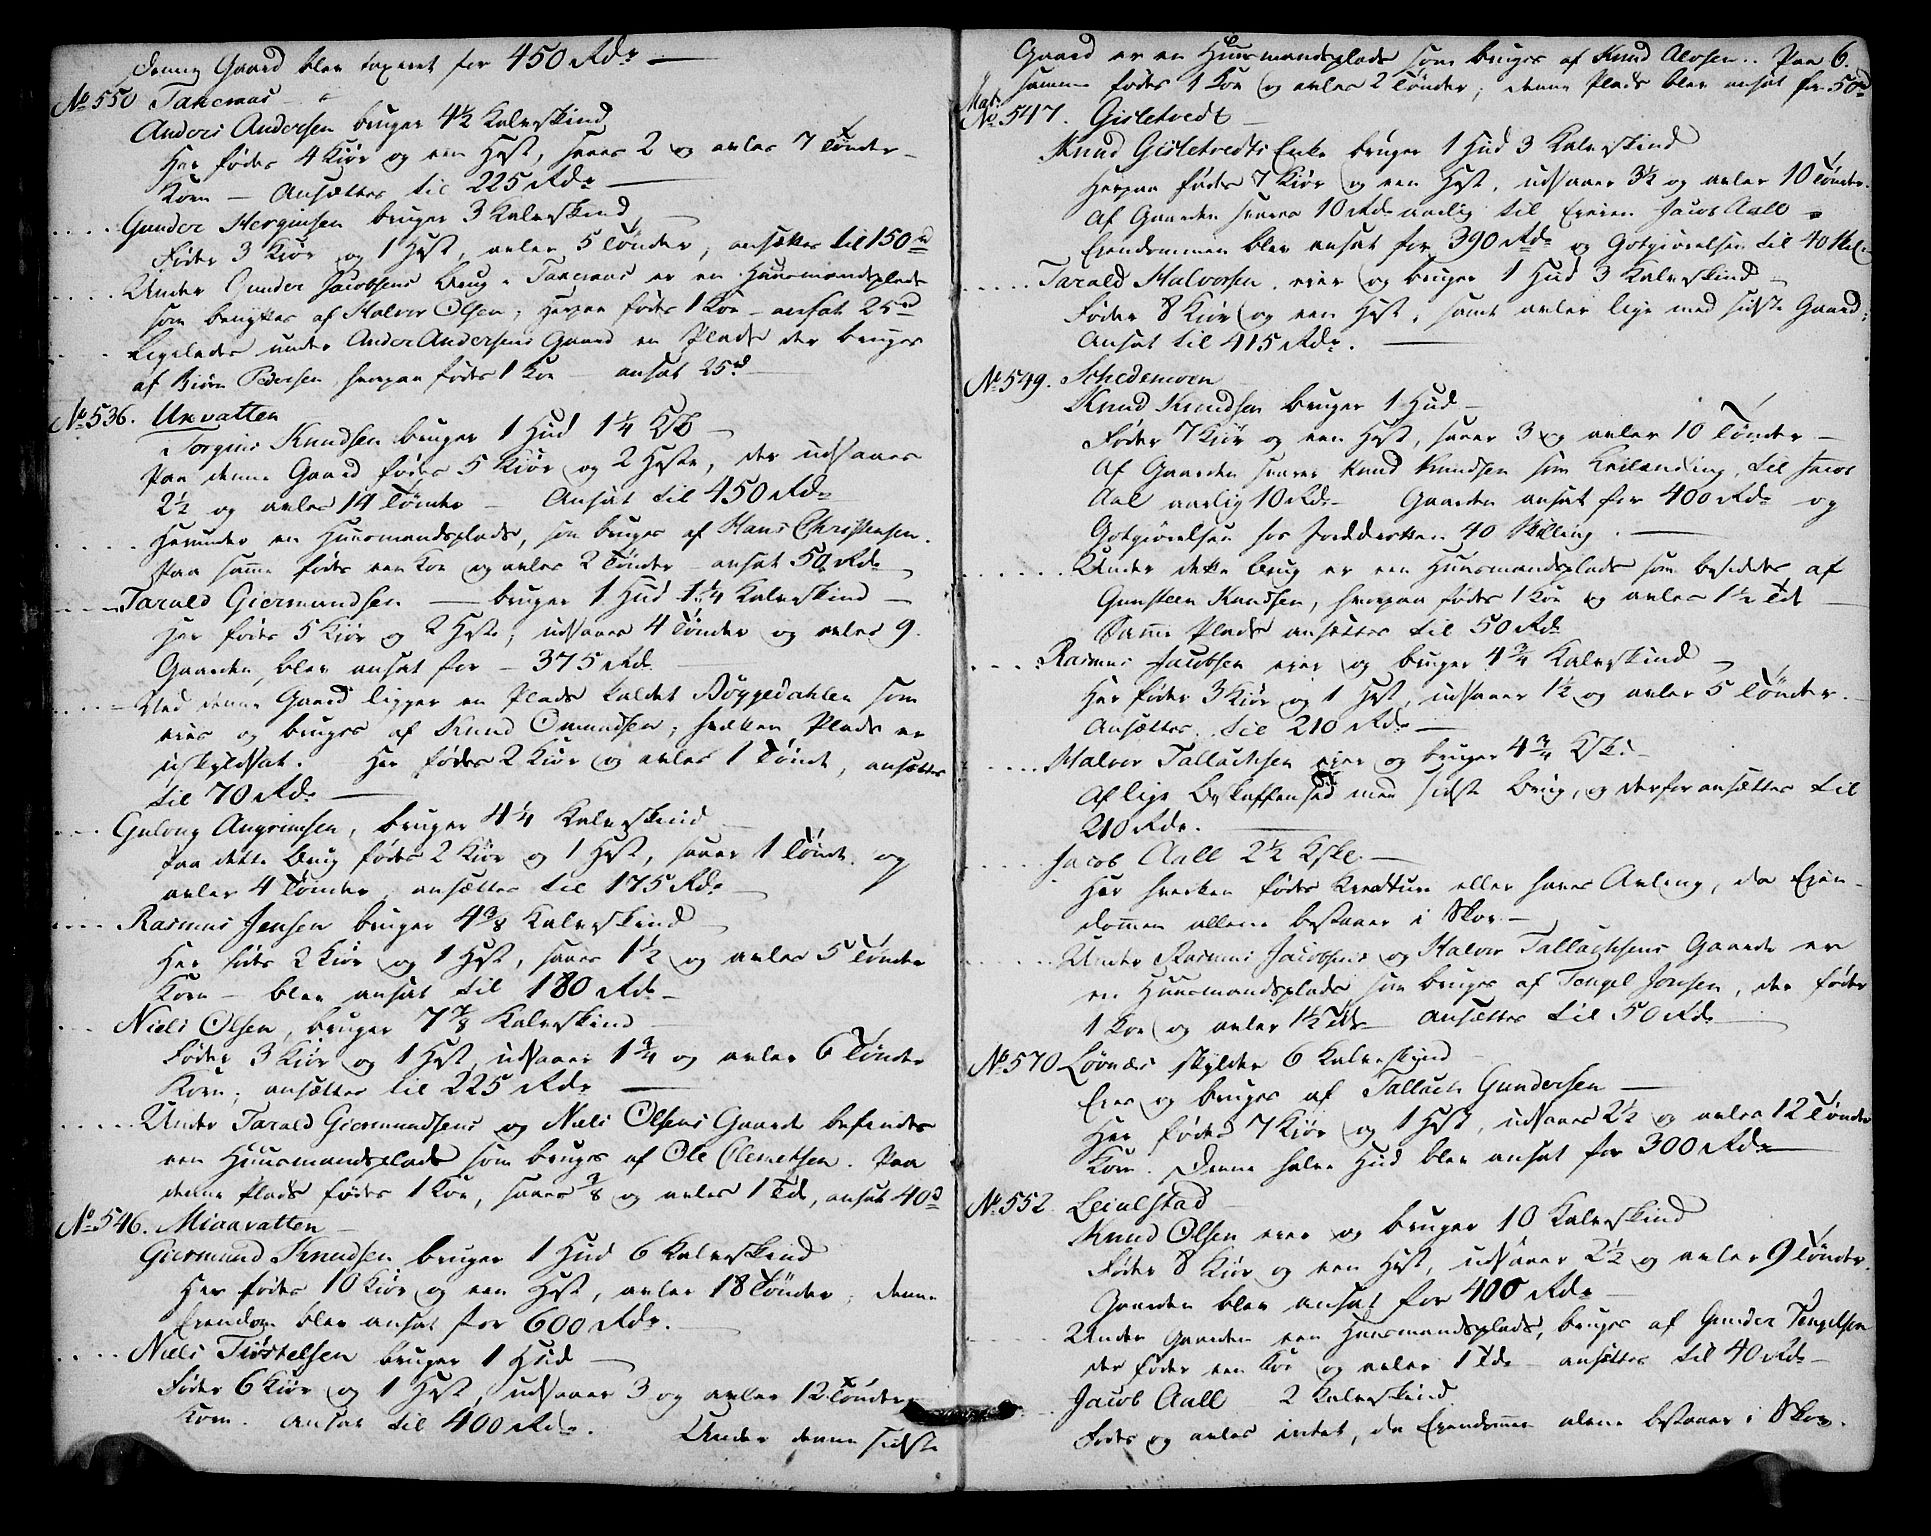 denne Gaard blev taxeret for 450 Rdr
No 550 Tanemas
Anders Andersen bruger 4½ Kalvskind
Her fødes 4 Kiör og een Hest, saaes 2 og avles 7 Tønder
Korn — Ansættes til 225 Rdr
Gunder Jerginsen bruger 3 Kalvskind
Føder 3 Kiör og 1 Hest, avler 5 Tønder, ansættes til 150 rd
Under Gunder Jacobsens Brug Tanemas er en Huusmandsplads
som benyttes af Halvor Olsen, herpaa fødes 1 Koe – ansat 25 rd
Ligeledes under Anders Andersens Gaard en Plads der bruges
af Biörn Pedersen, hvorpaa fødes 1 Koe ansat 25 rd
No 536. Uxvatten
Torgius Knudsen bruger 1 Hud 1¼ Ksk
Paa denne Gaard fødes 5 Kiör og 2 Heste, der udsaaes
2½ og avles 14 Tønder – Ansat til 450 Rdr
Herunder en Huusmandsplads, som bruges af Hans Christensen.
Paa samme fødes een Koe og avles 2 Tønder – ansat 50 Rdr
Tarald Giermundsen — bruger 1 Hud 1¼ Kalvskind —
Her fødes 5 Kiör og 2 Heste, udsaaes 4 Tønder og avles 9.
Gaarden blev ansat for – 375 Rdr.
Ved denne Gaard ligger en Plads kaldet Böggedahlen som
eies og bruges af Knud Omundsen, hvilken Plads er
uskyldsat. Her fødes 2 Kiör og avles 1 Tønde, ansættes
til 70 Rdr
Gulong Angrimsen, bruger 4¼ Kalvskind
Paa dette Brug fødes 2 Kiör og 1 Hest, saaes 1 Tønde og
avles 4 Tønder, ansættes til 175 Rdr
Rasmus Jensen bruger 4⅜ Kalvskind
Her fødes 2 Kiör og 1 Hest, saaes 1½ og avles 5 Tønder
Korn – blev ansat til 180 Rdr –
Niels Olsen, bruger 7⅞ Kalvskind
Føder 3 Kiör og 1 Hest, udsaaer 1¾ og avler 6 Tønder
Korn, ansættes til 225 Rdr
Under Tarald Giermundsens og Niels Olsens Gaarde befindes
een Huusmandsplads som bruges af Ole Clemetsen. Paa
denne Plads fødes 1 Koe, saaes ⅜ og avles 1 Td, ansat 40 d
No 546. Miaavatten
Giermund Knudsen bruger 1 Hud 6 Kalvskind
Her fødes 10 Kiör og een Hest, avles 18 Tönder, denne
Eiendom blev ansat for 600 Rdr.
Niels Tiöstelsen bruger 1 Hud
Føder 6 Kiör og 1 Hest, udsaaer 3 og avler 12 Tønder
Korn. Ansat til 400 Rdr.
Under denne sidste
Gaard er en Huusmandsplads som bruges af Knud Alvsen. Paa 6.
samme fødes 1 Koe og avles 2 Tønder, denne Plads blev ansat for 50 d
Mat. No 547. Gisletvedt
Knud Gisletvedts Enke bruger 1 Hud 3 Kalvskind
Herpaa fødes 7 Kiör og een Hest, udsaaer 3½ og avler 10 Tönder.
Af Gaarden svares 10 Rdr aarlig til Eieren Jacob Aall
Eiendommen blev ansat for 390 Rdr og Godtgiörelsen til 40 skil.
Tarald Halvorsen, eier og bruger 1 Hud 3 Kalvskind
Føder 8 Kiör og een Hest, samt avler lige med sidste Gaard,
Ansat til 415 Rdr.
No 549. Schedemoen
Knud Knudsen bruger 1 Hud
Föder 7 Kiör og een Hest, saaer 3 og avler 10 Tønder –
Af Gaarden svarer Knud Knudsen som Leilænding, til Jacob
Aal aarlig 10 Rdr – Gaarden ansat for 400 Rdr og
Godtgiörelsen for Jorddrotten 40 Skilling.
Under dette Brug er een Huusmandsplads som besiddes af
Gunsteen Knudsen, hvorpaa fødes 1 Koe og avles 1½ Td
Samme Plads ansættes til 50 Rdr
Rasmus Jacobsen eier og bruger 4¾ Kalvskind
Her föder 3 Kiör og 1 Hest, udsaaer 1½ og avler 5 Tönder.
Ansættes til 210 Rdr
Halvor Tallachsen eier og bruger 4¾ Ksk.
Af lige Beskaffenhed med sidste Brug, og derfor ansættes til
210 Rdr.
Jacob Aall 2½ Kskl.
Her hverken fødes Kreature eller haves Avling, da Eien-
dommen allene bestaaer i Skov.
Under Rasmus Jacobsens og Halvor Tallachsens Gaarde er
en Huusmandsplads som bruges af Tengel Jonsen, der føder
1 Koe og avler 1½ Tdr – ansættes til 50 Rdr
No 570 Lövnæs skylder 6 Kalvskind
Eies og bruges af Tallach Gundersen
Her fødes 7 Kiör og 1 Hest, udsaaes 2½ og avles 12 Tönder
Korn. Denne halve Hud blev ansat for 300 Rdr
No 552. Leivlstad
Knud Olsen eier og bruger 10 Kalvskind
Føder 8 Kiör og een Hest, udsaaer 2½ og avler 9 Tönder.
Gaarden blev ansat for 400 Rdr
Under Gaarden een Huusmandsplads, bruges af Gunder Tengelsen
der føder een Koe og avler 1 Td – ansættes til 40 Rdr
Jacob Aall 2 Kalvskind
Fødes og avles intet, da Eiendommen alene bestaaer i Skov.